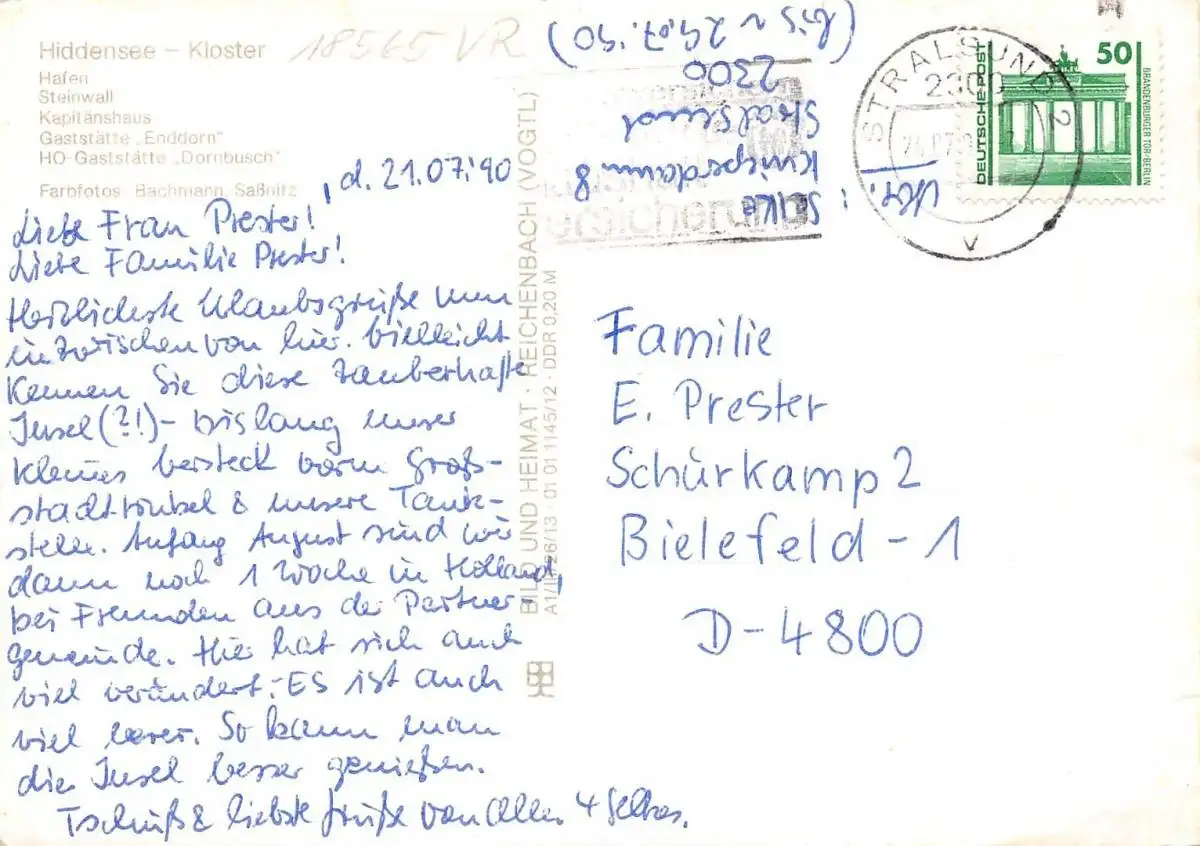 Hiddensee – Kloster
Hafen
Steinwall
Kapitänshaus
Gaststätte „Enddorn“
HO-Gaststätte „Dornbusch“
Farbfotos Bachmann, Saßnitz
18565 VR
, d. 21.07.'90
Liebe Frau Prester!
Liebe Familie Prester!
Herzlichste Urlaubsgrüße nun
inzwischen von hier. Vielleicht
kennen Sie diese zauberhafte
Insel (?!) - bislang unser
kleines Versteck vorm Groß-
stadttrubel & unsere Tank-
stelle. Anfang August sind wir
dann noch 1 Woche in Holland,
bei Freunden aus der Partner-
gemeinde. Hier hat sich auch
viel verändert. - ES ist auch
viel leerer. So kann man
die Insel besser genießen.
Tschüß & liebste Grüße von Allen 4
BILD UND HEIMAT · REICHENBACH (VOGTL)
A1/ 26/13 · 01 01 1145/12 · DDR 0,20 M
Knieperdamm 8
Stralsund
2300
(bis ~ 29.07.'90)
STRALSUND 2
2300
v
DEUTSCHE POST
50
BRANDENBURGER TOR/BERLIN
Familie
E. Prester
Schürkamp 2
Bielefeld - 1
D - 4800